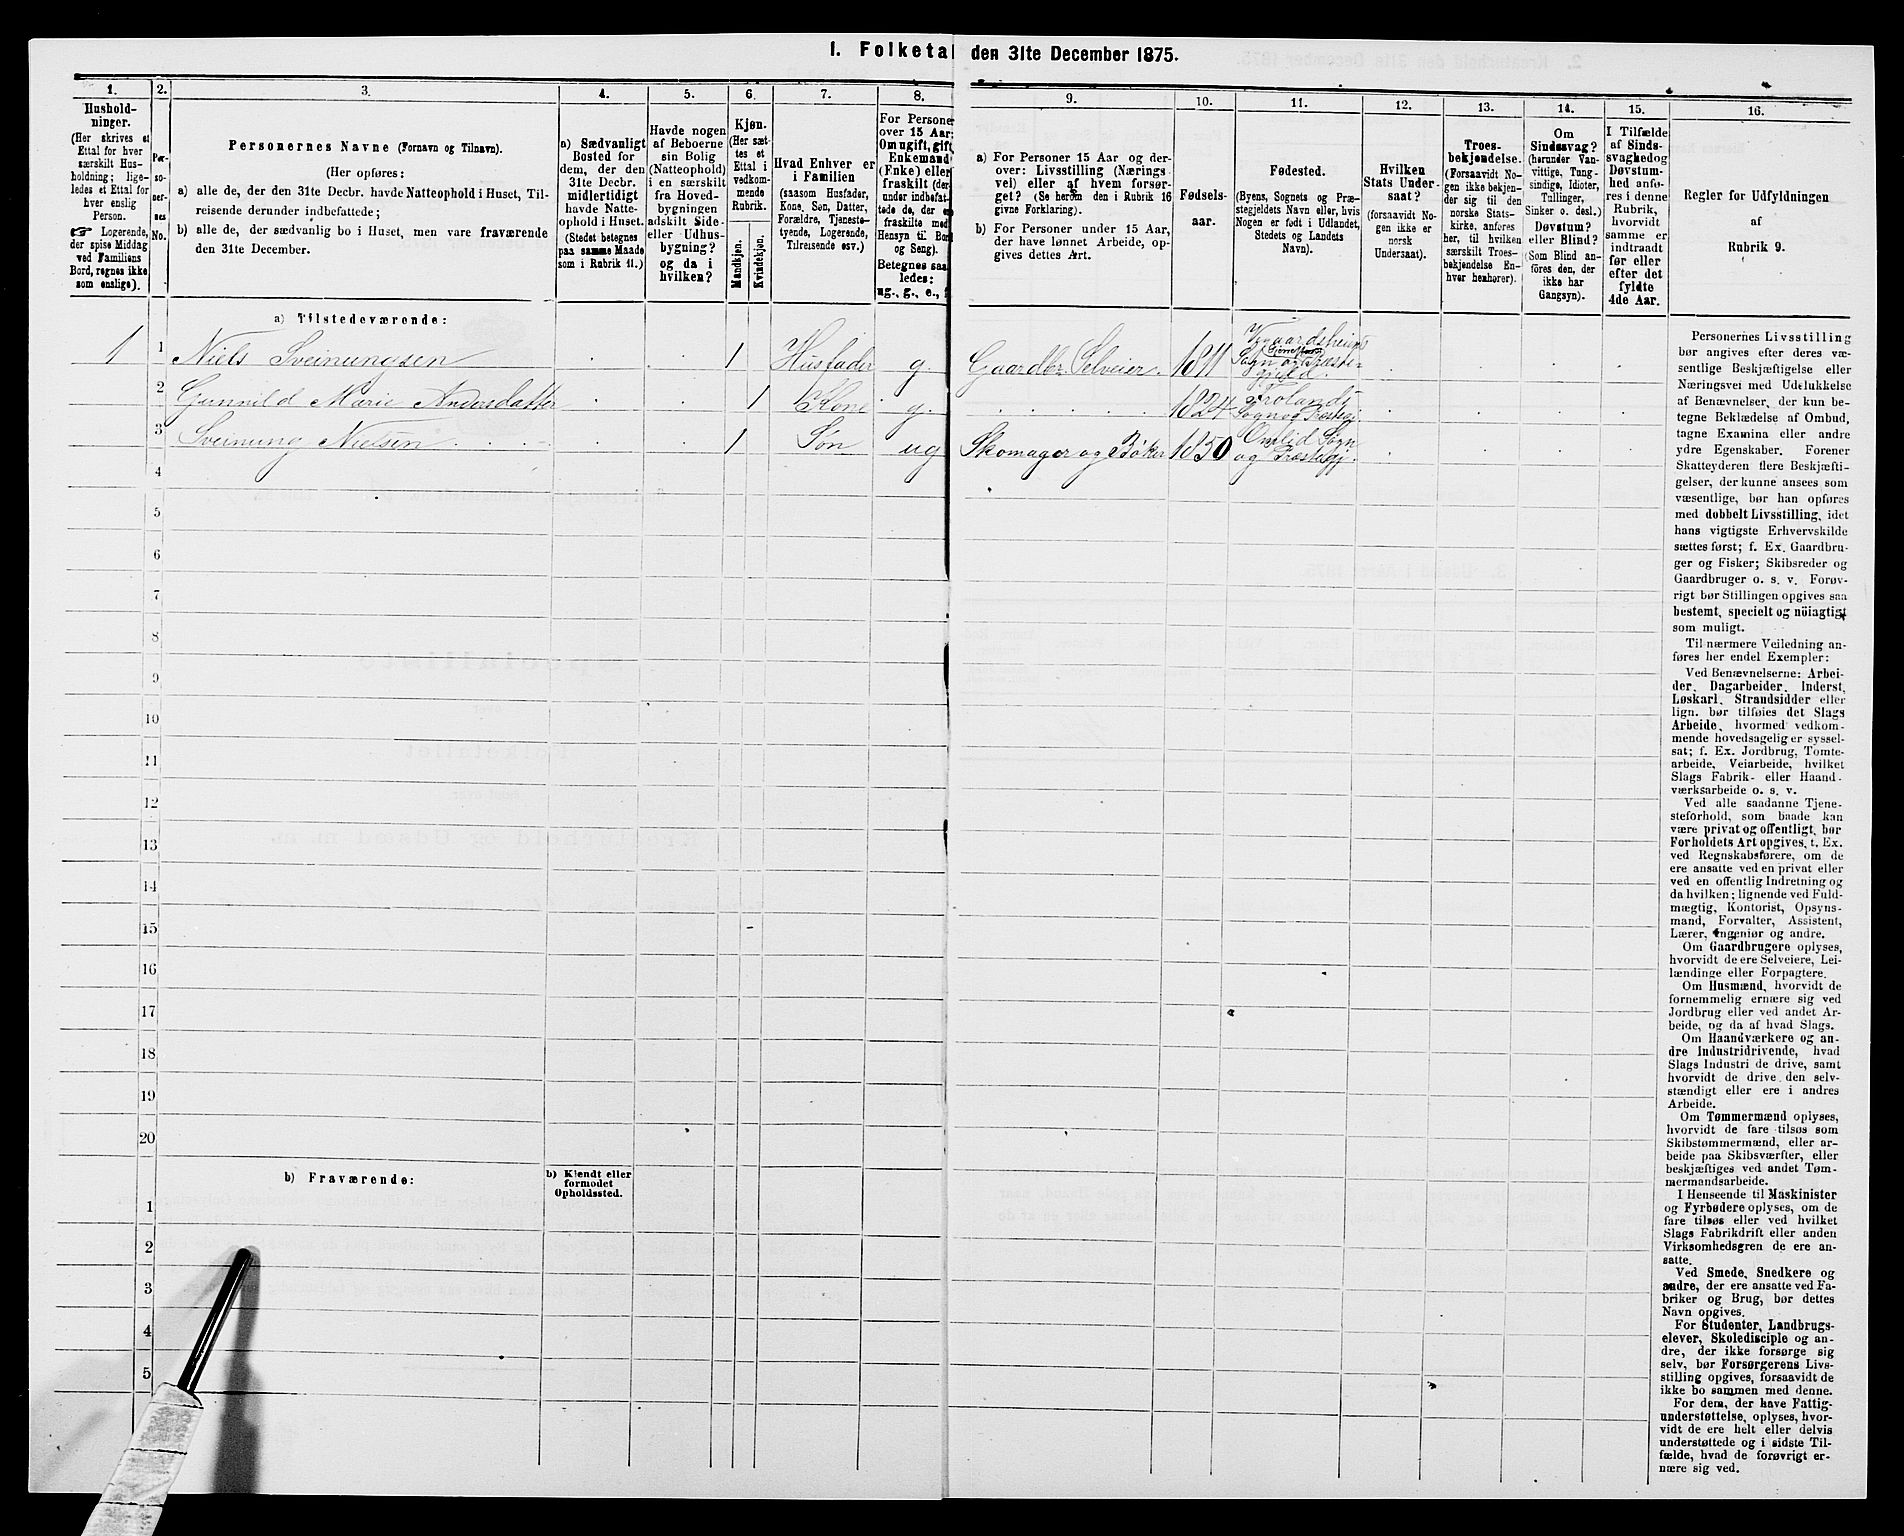 I. Folketal den 31te December 1875.
1.
2.
3.
4.
5.
6.
7.
8.
9.
10.
11.
12.
13.
14.
15.
16.
Hushold-
ninger.
(Her skrives et
Ettal for hver
særskilt Hus-
holdning; lige-
ledes et Ettal for
hver enslig
Person.
☞ Logerende,
der spise Middag
ved Familiens
Bord, regnes ikke
som enslige).
Per-
so-
ner-
nes
No.
Personernes Navne (Fornavn og Tilnavn).
(Her opføres:
a) alle de, der den 31te Decbr. havde Natteophold i Huset, Til-
reisende derunder indbefattede;
b) alle de, der sædvanlig bo i Huset, men vare fraværende
den 31te December.
a) Sædvanligt
Bosted for
dem, der den
31te Decbr.
midlertidigt
havde Natte-
ophold i Huset.
(Stedet betegnes
paa samme Maade
som i Rubrik 11.)
Havde nogen
af Beboerne
sin Bolig
(Natteophold)
i en særskilt
fra Hoved-
bygningen
adskilt Side-
eller Udhus-
bygning?
og da i
hvilken?
Kjøn.
(Her sæt-
tes et
Ettal i
vedkom-
mende
Rubrik.
Mandkjøn.
Kvindekjøn.
Hvad Enhver er
i Familien
(saasom Husfader,
Kone, Søn, Datter,
Forældre, Tjeneste-
tyende, Logerende,
Tilreisende osv.)
For Persone
over 15 Aar:
Om ugift, gift
Enkemand
(Enke) eller
fraskilt (der-
under indbefat-
tede de, der e
fraskilte med
Hensyn til Bor
og Seng).
Betegnes saa-
ledes:
ug., g., e.,
a) For Personer 15 Aar og der-
over: Livsstilling (Nærings-
vei) eller af hvem forsør-
get? (Se herom den i Rubrik 16
givne Forklaring).
b) For Personer under 15 Aar,
der have lønnet Arbeide, op-
gives dettes Art.
Fødsels-
aar.
Fødested.
(Byens, Sognets og Præ-
stegjeldets Navn eller, hvis
Nogen er født i Udlandet,
Stedets og Landets
Navn).
Hvilken
Stats Under-
saat?
(forsaavidt No-
gen ikke er
norsk
Undersaat).
Troes-
bekjendelse.
(Forsaavidt No-
gen ikke bekjen-
der sig til den
norske Stats-
kirke, anføres
her, til hvilken
særskilt Troes-
bekjendelse En-
hver henhører).
Om
Sindssvag?
(herunder Van-
vittige, Tung-
sindige, Idioter,
Tullinger,
Sinker o. desl.)
Døvstum?
eller Blind?
(Som Blind an-
føres den, der
ikke har
Gangsyn).
I Tilfælde
af Sinds-
svaghed og
Døvstum-
hed anfø-
res i denne
Rubrik,
hvorvidt
samme er
indtraadt
før eller
efter det
fyldte
4de Aar.
Regler for Udfyldningen
af
Rubrik 9.
a) Tilstedeværende:
1 1 Niels Sveinungsen 1 Husfader g. Gaardbr. Selveier. 1811 Vegaardsheims
Sogn og Præste-
gjeld.
2 Gunnild Marie Andersdatter 1 Kone g. 1824 Frolands
Sogn og Præstegj.
3 Sveinung Nielsen 1 Søn ug Skomager og Bøker 1850 Omlid Sogn
og Præstegj.
4
5
6
7
8
9
10
11
12
13
14
15
16
17
18
19
20
b) Fraværende:
b) Kjendt eller
formodet
Opholdssted.
1
2
3
4
5
Personernes Livsstilling
bør angives efter deres væ-
sentlige Beskjæftigelse eller
Næringsvei med Udelukkelse
af Benævnelser, der kun be-
tegne Beklædelse af Ombud,
tagne Examina eller andre
ydre Egenskaber. Forener
Skatteyderen flere Beskjæfti-
gelser, der kunne ansees som
væsentlige, bør han opføres
med dobbelt Livsstilling, idet
hans vigtigste Erhvervskilde
sættes først; f. Ex. Gaardbru-
ger og Fisker; Skibsreder og
Gaardbruger o. s. v. Forøv-
rigt bør Stillingen opgives saa
bestemt, specielt og nöiagtigt
som muligt.
Til nærmere Veiledning an-
føres her endel Exempler:
Ved Benævnelserne: Arbei-
der, Dagarbeider, Inderst,
Løskarl, Strandsidder eller
lign. bør tilføies det Slags
Arbeide, hvormed vedkom-
mende hovedsagelig er syssel-
sat; f. Ex. Jordbrug, Tomte-
arbeide, Veiarbeide, hvilket
Slags Fabrik- eller Haand-
værksarbeide o. s. v.
Ved alle saadanne Tjene-
steforhold, som baade kan
være privat og offentligt, bør
Forholdets Art opgives, t. Ex.
ved Regnskabsførere, om de
ere ansatte ved en privat eller
ved en offentlig Indretning og
da hvilken; lignende ved Fuld-
mægtig, Kontorist, Opsyns-
mand, Forvalter, Assistent,
Lærer, Ingeniør og andre.
Om Gaardbrugere oplyses,
hvorvidt de ere Selveiere, Lei-
lændinge eller Forpagtere.
Om Husmænd, hvorvidt de
fornemmelig ernære sig ved
Jordbrug eller ved andet Ar-
beide, og da af hvad Slags.
Om Haandværkere og an-
dre Industridrivende, hvad
Slags Industri de drive, samt
hvorvidt de drive den selv-
stændigt eller ere i andres
Arbeide.
Om Tømmermænd oplyses,
hvorvidt de fare tilsøs som
Skibstømmermænd, eller ar-
beide paa Skibsværfter, eller
beskjæftiges ved andet Tøm-
mermandsarbeide.
I Henseende til Maskinister
og Fyrbødere oplyses, om de
fare tilsøs eller ved hvilket
Slags Fabrikdrift eller anden
Virksomhedsgren de ere an-
satte.
Ved Smede, Snedkere og
andre, der ere ansatte ved Fa-
briker og Brug, bør dettes
Navn opgives.
For Studenter, Landbrugs-
elever, Skoledisciple og an-
dre, der ikke forsørge sig
selv, bør Forsørgerens Livs-
stilling opgives, forsaavidt de
ikke bo sammen med denne.
For dem, der have Fattig-
understøttelse, oplyses, hvor-
vidt de ere helt eller delvis
understøttede og i sidste Til-
fælde, hvad de forøvrigt er-
nære sig ved.